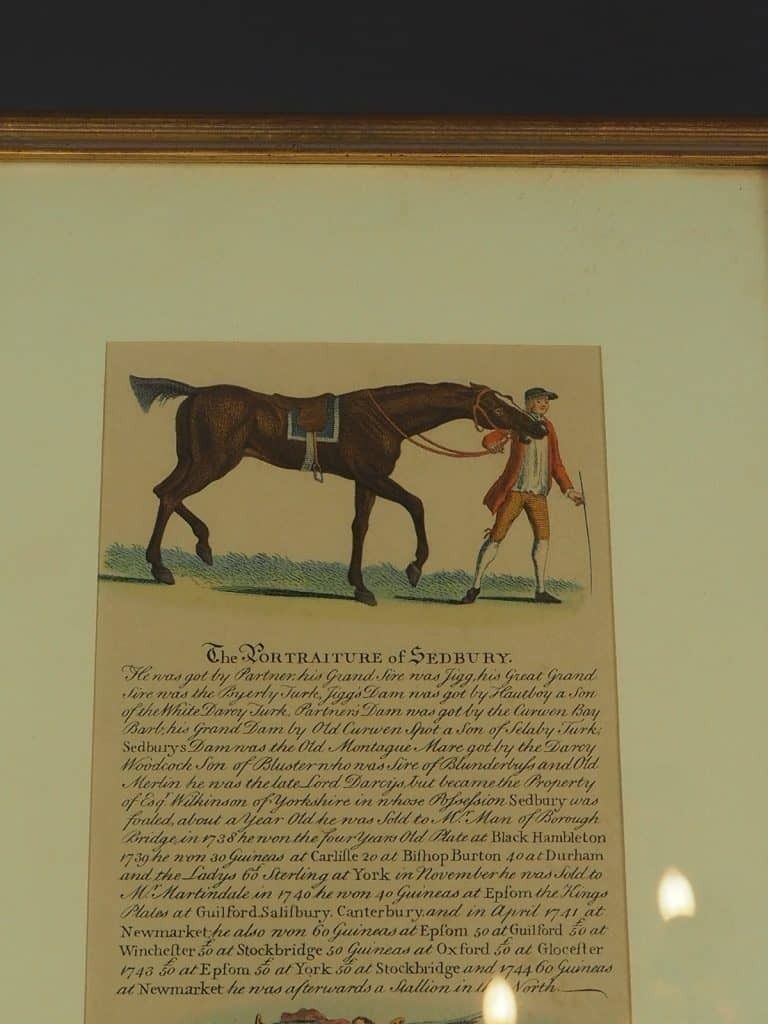 The PORTRAITURE of SEDBURY.
He was got by Partner, his Grand Sire was Jigg, his Great Grand
Sire was the Byerly Turk, Jigg's Dam was got by Hautboy a Son
of the White Darcy Turk. Partner's Dam was got by the Curwen Bay
Barb, his Grand Dam by Old Curwen Spot a Son of Selaby Turk;
Sedbury's Dam was the Old Montague Mare got by the Darcy
Woodcock Son of Bluster who was Sire of Blunderbuſs and Old
Merlin he was the late Lord Darcijs, but became the Property
of Esqr. Wilkinson of Yorkshire in whose Poſseſsion Sedbury was
foaled, about a Year Old he was Sold to Mr. Man of Borough
Bridge, in 1738 he won the four Years Old Plate at Black Hambleton
1739 he won 30 Guineas at Carliſle 20 at Biſhop Burton 40 at Durham
and the Ladys 60£ Sterling at York in November he was Sold to
Mr. Martindale in 1740 he won 40 Guineas at Epſom the Kings
Plates at Guilford, Saliſbury, Canterbury, and in April 1741 at
Newmarket, he also won 60 Guineas at Epſom 50 at Guilford £50 at
Wincheſter £50 at Stockbridge 50 Guineas at Oxford £50 at Gloceſter
1743 £50 at Epſom £50 at York £50 at Stockbridge and 1744 60 Guineas
at Newmarket he was afterwards a Stallion in the North.